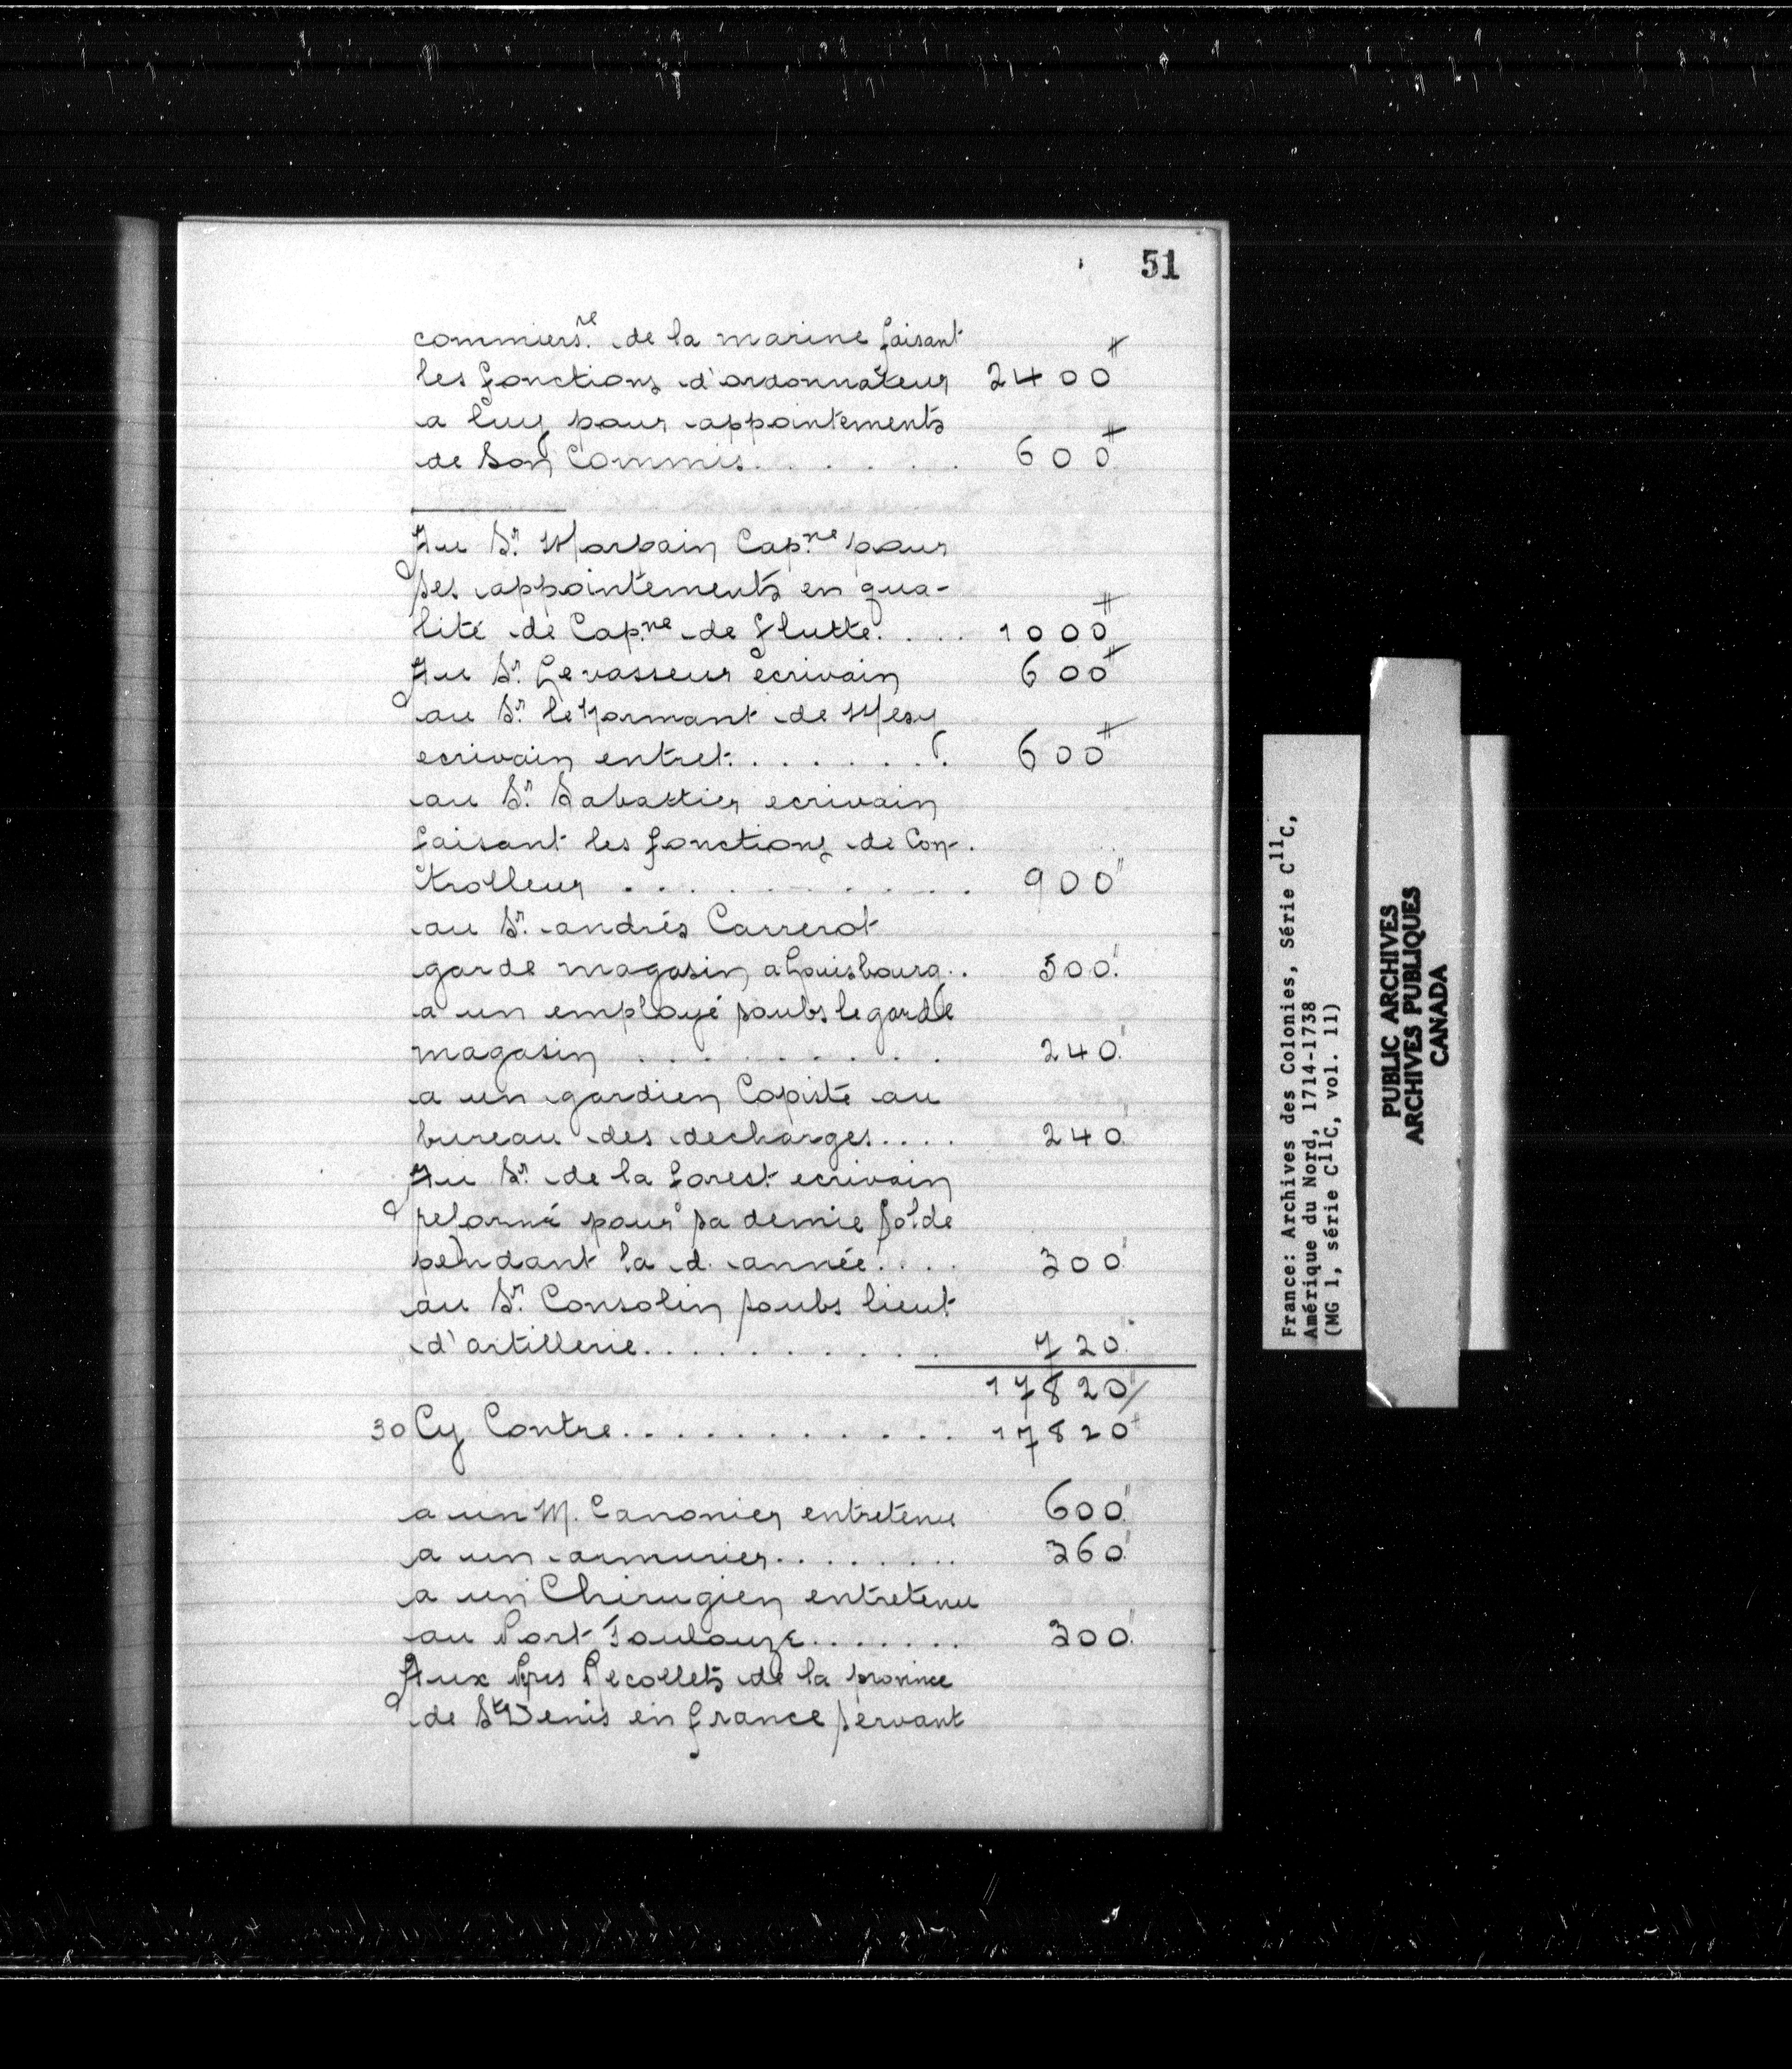 51
commiers.re de la marine faisant
les fonctions d'ordonnateur 2400#
a luy pour appointements
de Son Commis. . . . . . 600#
Au Sr. Morpain Cap.ne pour
ses appointements en qua-
lité de Cap.ne de flutte. . . . 1000#
Au Sr. Levasseur Ecrivain 600#
au Sr. le Normant de Mesy
ecrivain entret. . . . . . . . 600#
au Sr. Sabattier ecrivain
faisant les fonctions de Con-
trolleur . . . . . . . . . 900"
au Sr. andrés Carrerot
garde magasin a Louisbourg. . 500"
a un employé soubs le garde
magasin . . . . . . . . 240"
a un gardien Copiste au
bureau des decharges. . . . 240
Au Sr. de la forest ecrivain
reformé pour sa demie solde
pendant la d. année. . . . 300"
au Sr. Consolin soubs lieut
d'artillerie. . . . . . . . . . 720"
17820"/
30 Cy Contre. . . . . . . . . . . . 17820#
a un M. Canonier entretenu 600"
a un armurier. . . . . . . . 360"
a un Chirugien entretenu
au Port Toulouze. . . . . . . 300"
Aux Pres Recollets de la province
de St Denis en france servant
France: Archives des Colonies, Série C11C,
Amérique du Nord, 1714-1738
(MG 1, série C11C, vol. 11)
PUBLIC ARCHIVES
ARCHIVES PUBLIQUES
CANADA